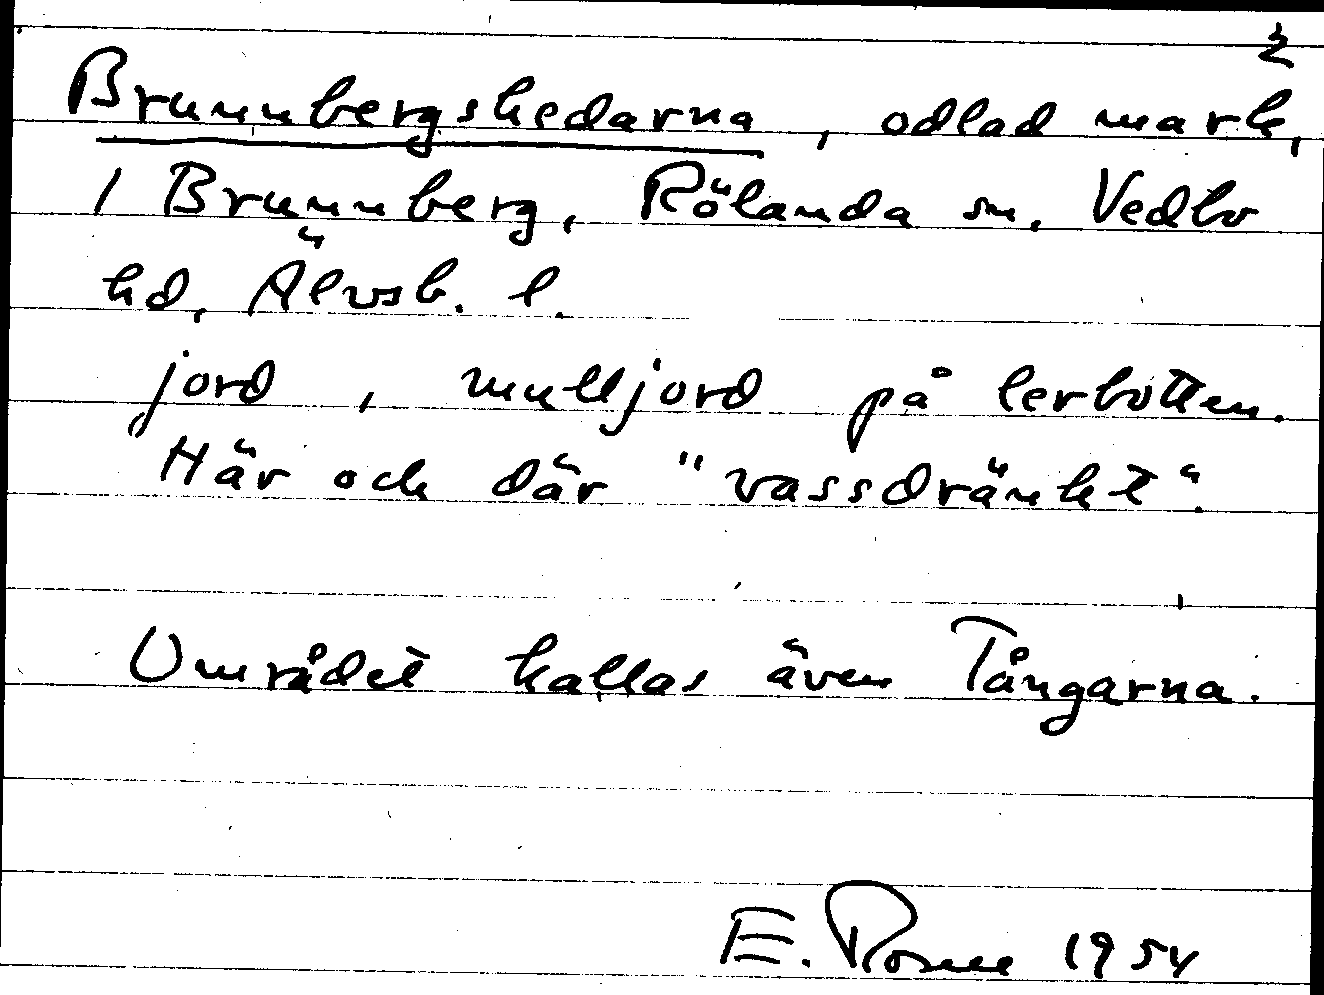 2
Brunnbergshedarna, odlad mark,
1 Brunnberg, Rölanda sn, Vedbo
hd, Älvsb. l.
jord, mulljord på lerbotten.
Här och där "vassdränkt".
Området kallas även Tångarna.
E. Rosell 1954